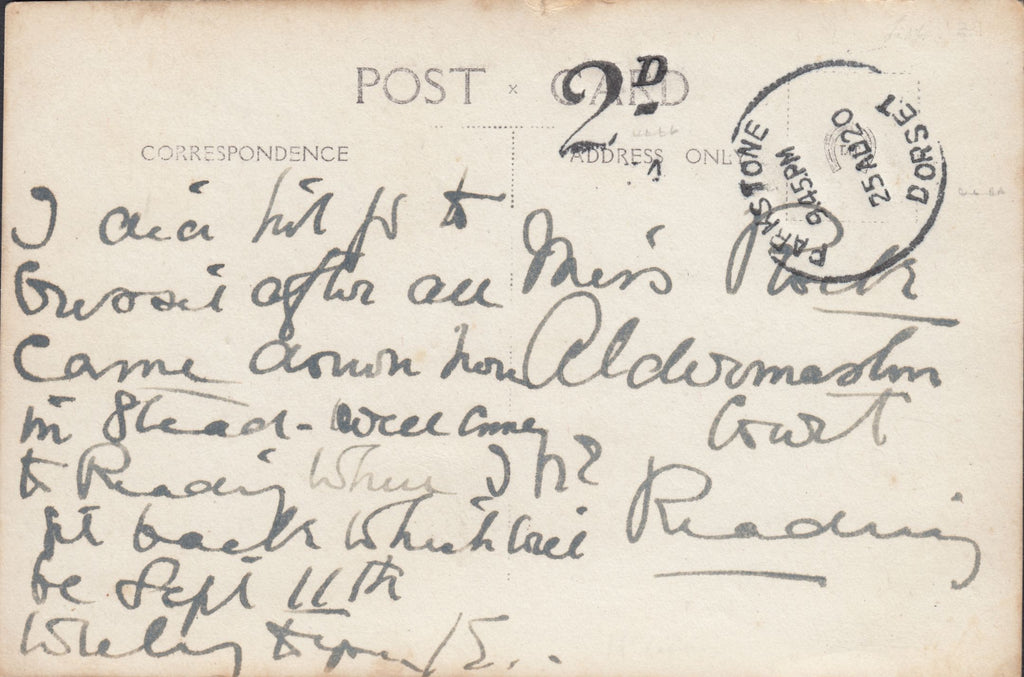 POST CARD
2D
CORRESPONDENCE
ADDRESS ONLY
PARKSTONE DORSET
9.45PM
25 AU 20
I did not go to
after all
Came down here
in Stead - will
to Reading when I
get back which will
be Sept 11th
Miss
Aldermaston
Court
Reading